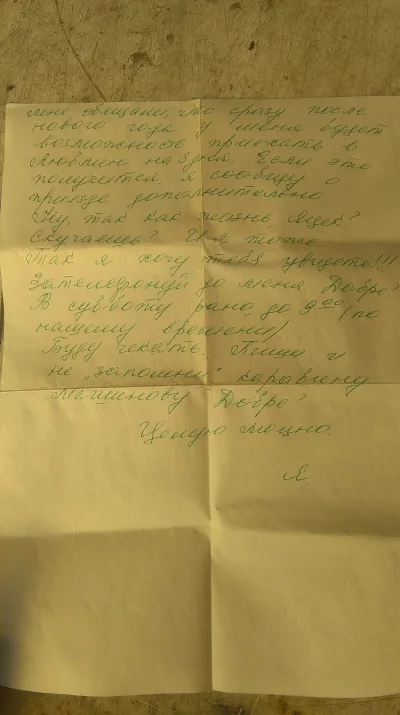 мне обещали, что сразу после
нового года у меня будет
возможность приехать в
Люблин на 3 дня. Если это
получится, я сообщу о
приезде дополнительно
Ну, так как жизнь Яцек?
Скучаешь? И я тоже
Так я хочу тебя увидеть!!!
Зателефонуй до меня. Добре?
В субботу рано, до 9 00 (по
нашему времени)
Буду чекать. Пиши и
не „запомни"
Машинову Добре?
Целую моцно.
Я.